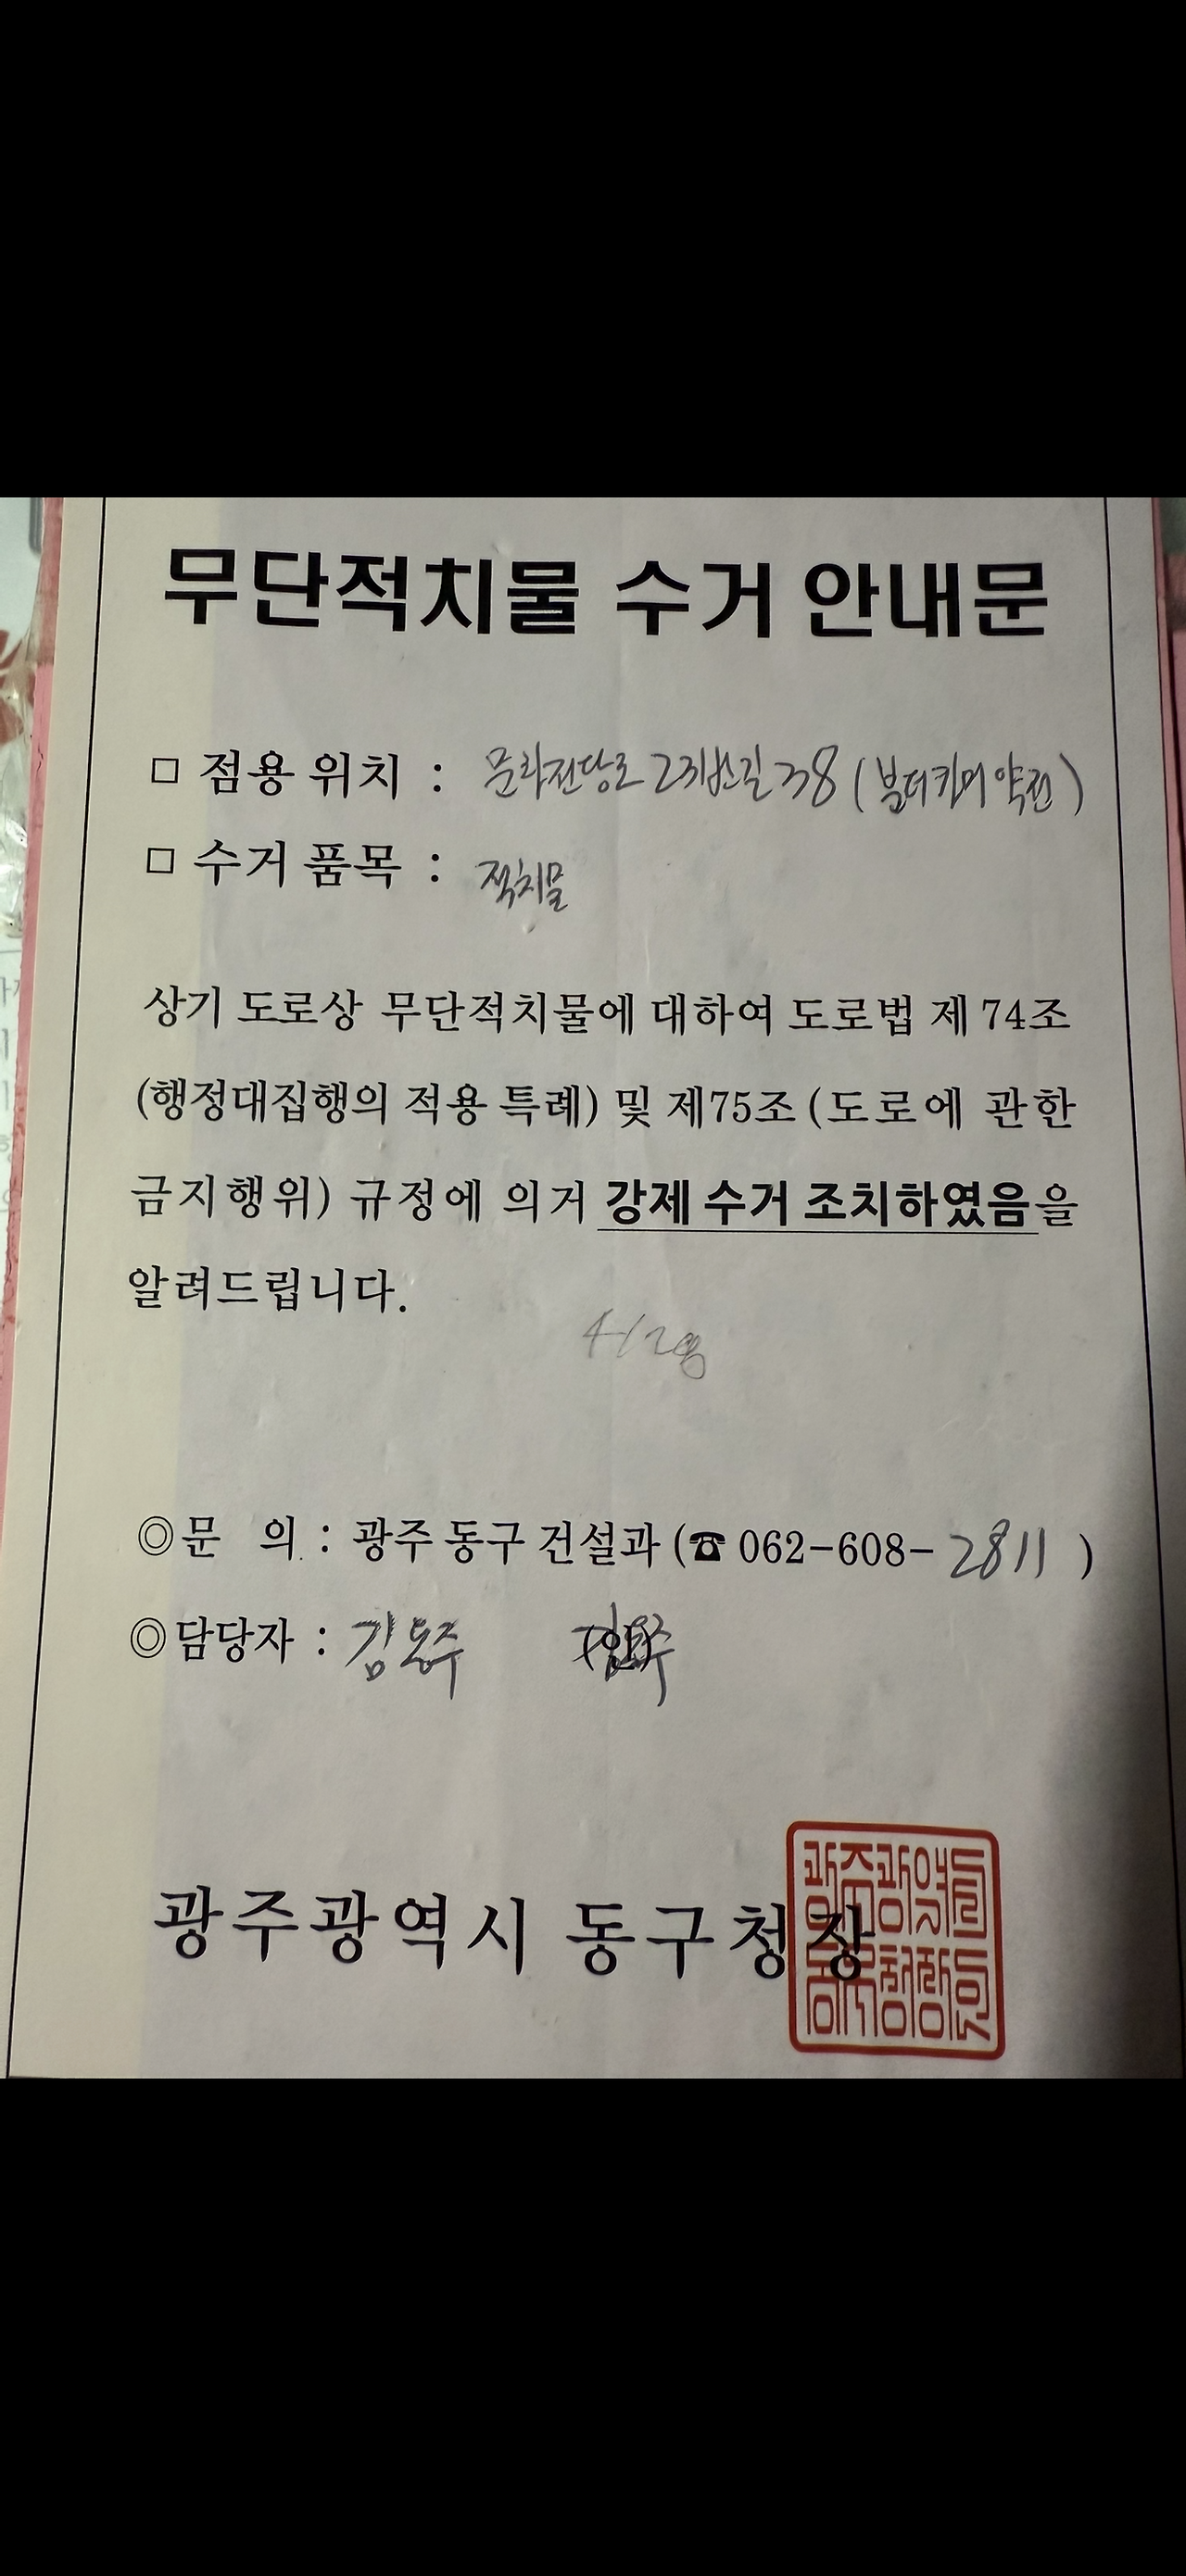 무단적치물 수거 안내문
□ 점용 위치 : 문화전당로 23번길 38 (
□ 수거 품목 : 적치물
상기 도로상 무단적치물에 대하여 도로법 제 74조
(행정대집행의 적용 특례) 및 제75조 (도로에 관한
금지행위) 규정에 의거 강제 수거 조치하였음을
알려드립니다.
◎문 의 : 광주 동구 건설과 (☎ 062-608-2811 )
◎담당자 : 김동주 (인)
광주광역시 동구청장